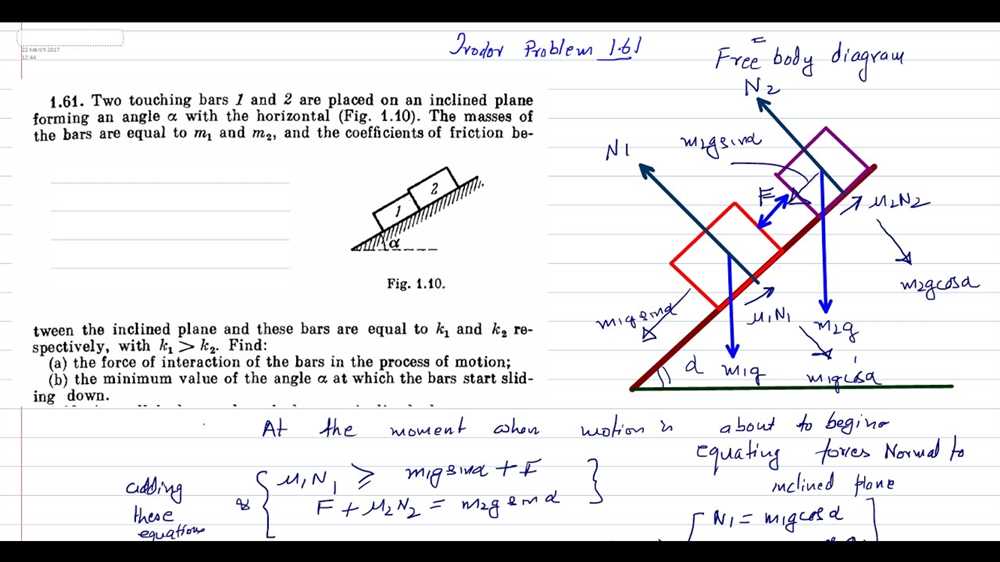 22 MARCH 2017
12:44
Irodov Problem 1.61
Free body diagram
1.61. Two touching bars 1 and 2 are placed on an inclined plane
forming an angle α with the horizontal (Fig. 1.10). The masses of
the bars are equal to m₁ and m₂, and the coefficients of friction be-
1
2
α
Fig. 1.10.
tween the inclined plane and these bars are equal to k₁ and k₂ re-
spectively, with k₁ > k₂. Find:
(a) the force of interaction of the bars in the process of motion;
(b) the minimum value of the angle α at which the bars start slid-
ing down.
N2
m2gsinα
N1
F
μ2N2
m2gcosα
m1gsinα
μ1N1
m2g
α
m1g
m1gcosα
At the moment when motion is about to begin
equating forces Normal to
inclined plane
μ1N1 ≥ m1gsinα + F
F + μ2N2 = m2gsinα
adding
these
equations
N1 = m1gcosα